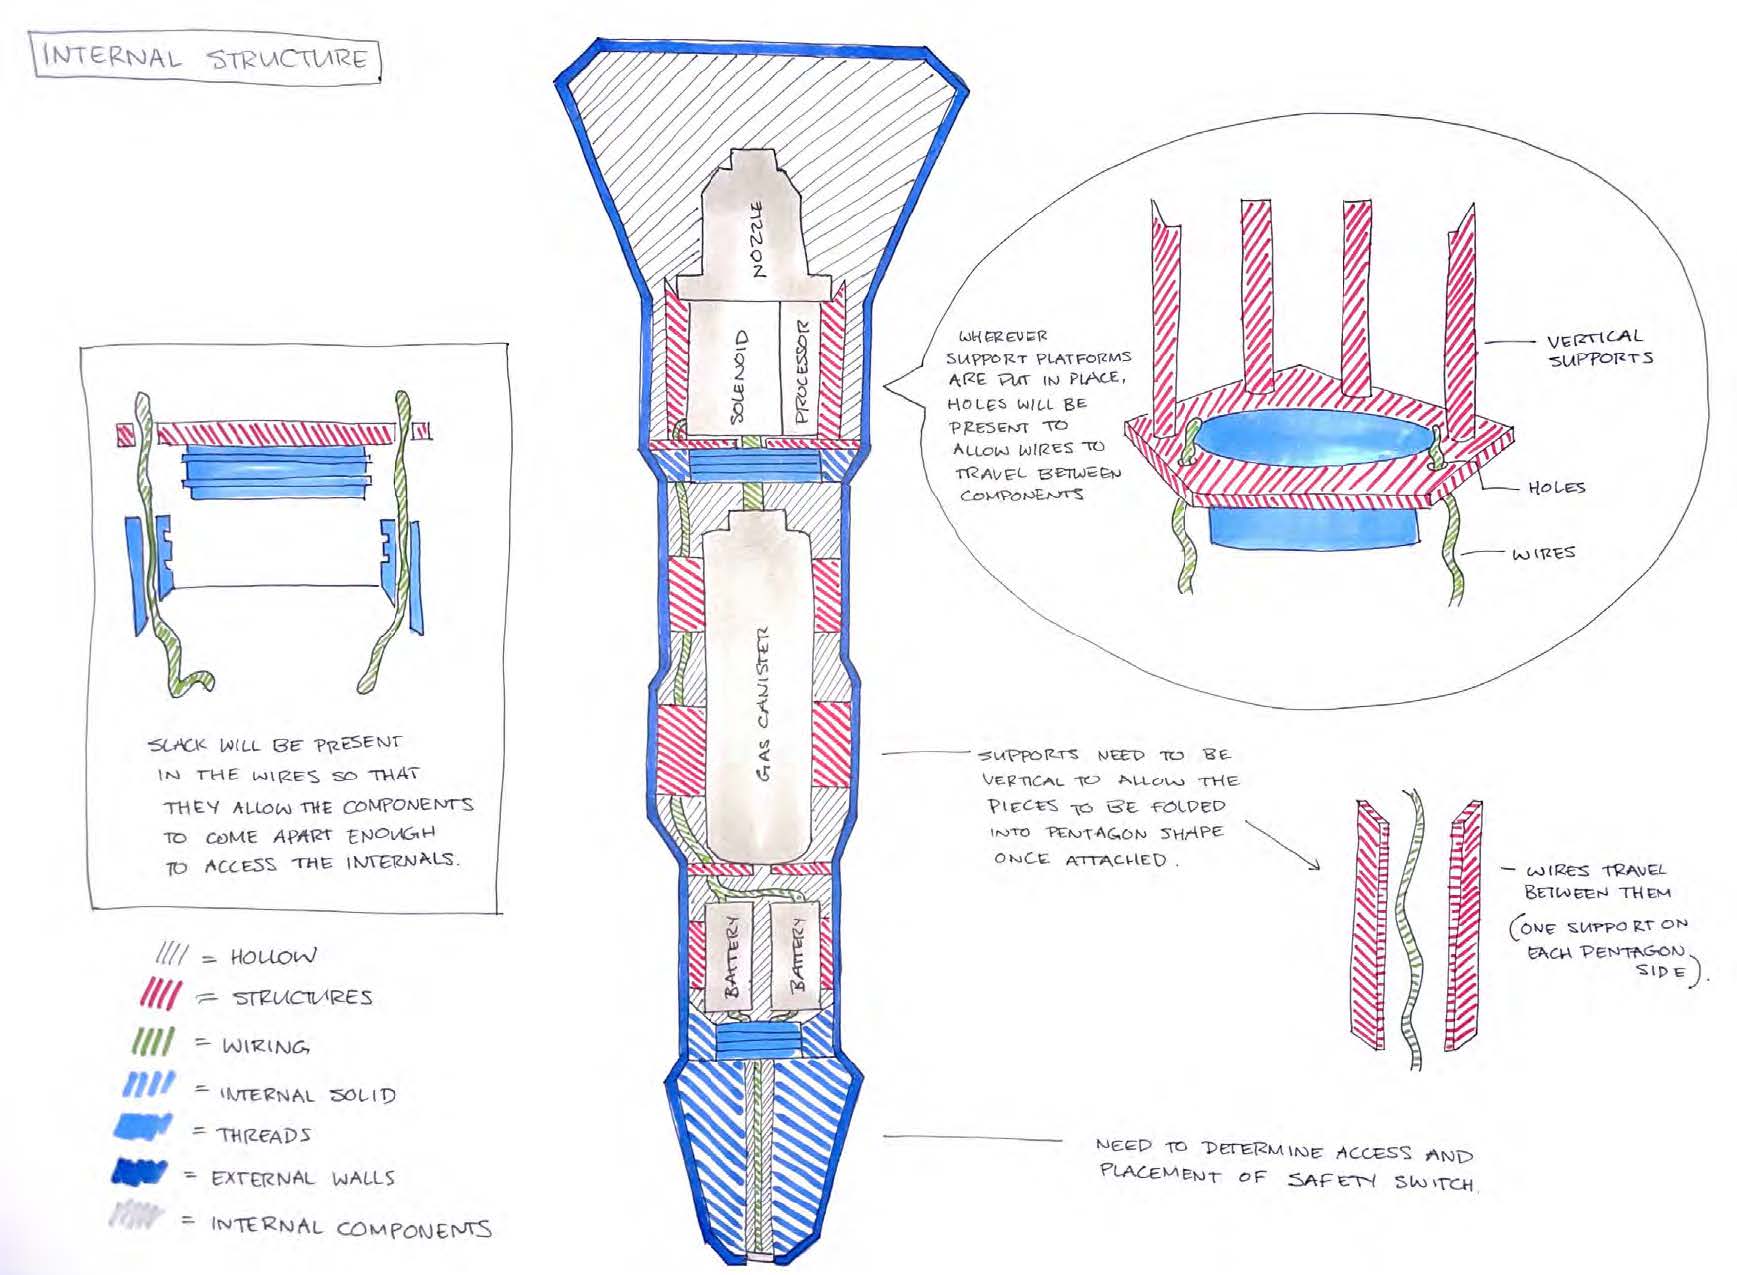 INTERNAL STRUCTURE
NOZZLE
SOLENOID
PROCESSOR
GAS CANISTER
BATTERY
BATTERY
WHEREVER
SUPPORT PLATFORMS
ARE PUT IN PLACE,
HOLES WILL BE
PRESENT TO
ALLOW WIRES TO
TRAVEL BETWEEN
COMPONENTS
VERTICAL
SUPPORTS
HOLES
WIRES
SLACK WILL BE PRESENT
IN THE WIRES SO THAT
THEY ALLOW THE COMPONENTS
TO COME APART ENOUGH
TO ACCESS THE INTERNALS.
SUPPORTS NEED TO BE
VERTICAL TO ALLOW THE
PIECES TO BE FOLDED
INTO PENTAGON SHAPE
ONCE ATTACHED.
WIRES TRAVEL
BETWEEN THEM
(ONE SUPPORT ON
EACH PENTAGON
SIDE).
= HOLLOW
= STRUCTURES
= WIRING
= INTERNAL SOLID
= THREADS
= EXTERNAL WALLS
= INTERNAL COMPONENTS
NEED TO DETERMINE ACCESS AND
PLACEMENT OF SAFETY SWITCH.